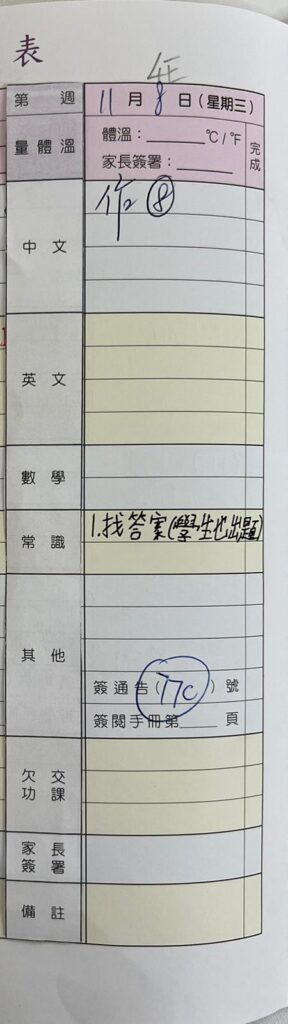 表
4E
第 週 11 月 8 日 (星期三)
量體溫 體溫：______°C / °F 完成
家長簽署：______
中 文 作⑧
英 文
數 學
常 識 1.找答案(學生也出題)
其 他
簽通告 ( 17C ) 號
簽閱手冊第____ 頁
欠 交
功 課
家 長
簽 署
備 註